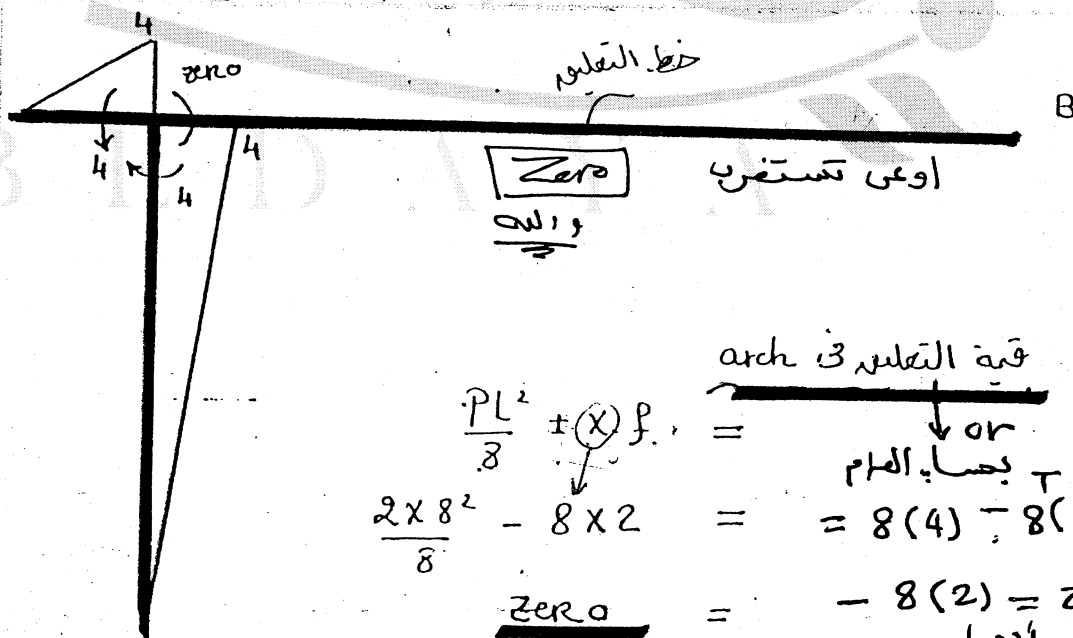 4
zero
خط التعليق
B
4
4
4
Zero
اوعى تستغرب
والله
قيمة التعليق فى arch
PL²/8 ± x f =
or
بحساب العزم
2 x 8²/8 - 8 x 2 = = 8(4) - 8(
ZERO = - 8(2) =